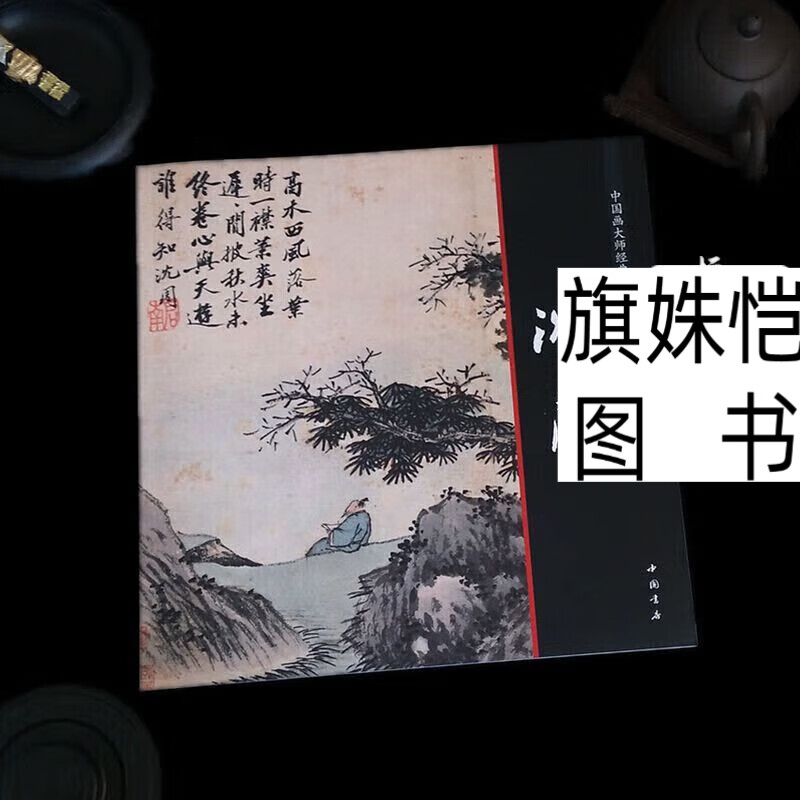 高木西风落叶
时一襟萧爽坐
遲〻闲披秋水未
终卷心與天遊
誰得知沈周
中国画大师经典
旗姝恺
图书
中国书店